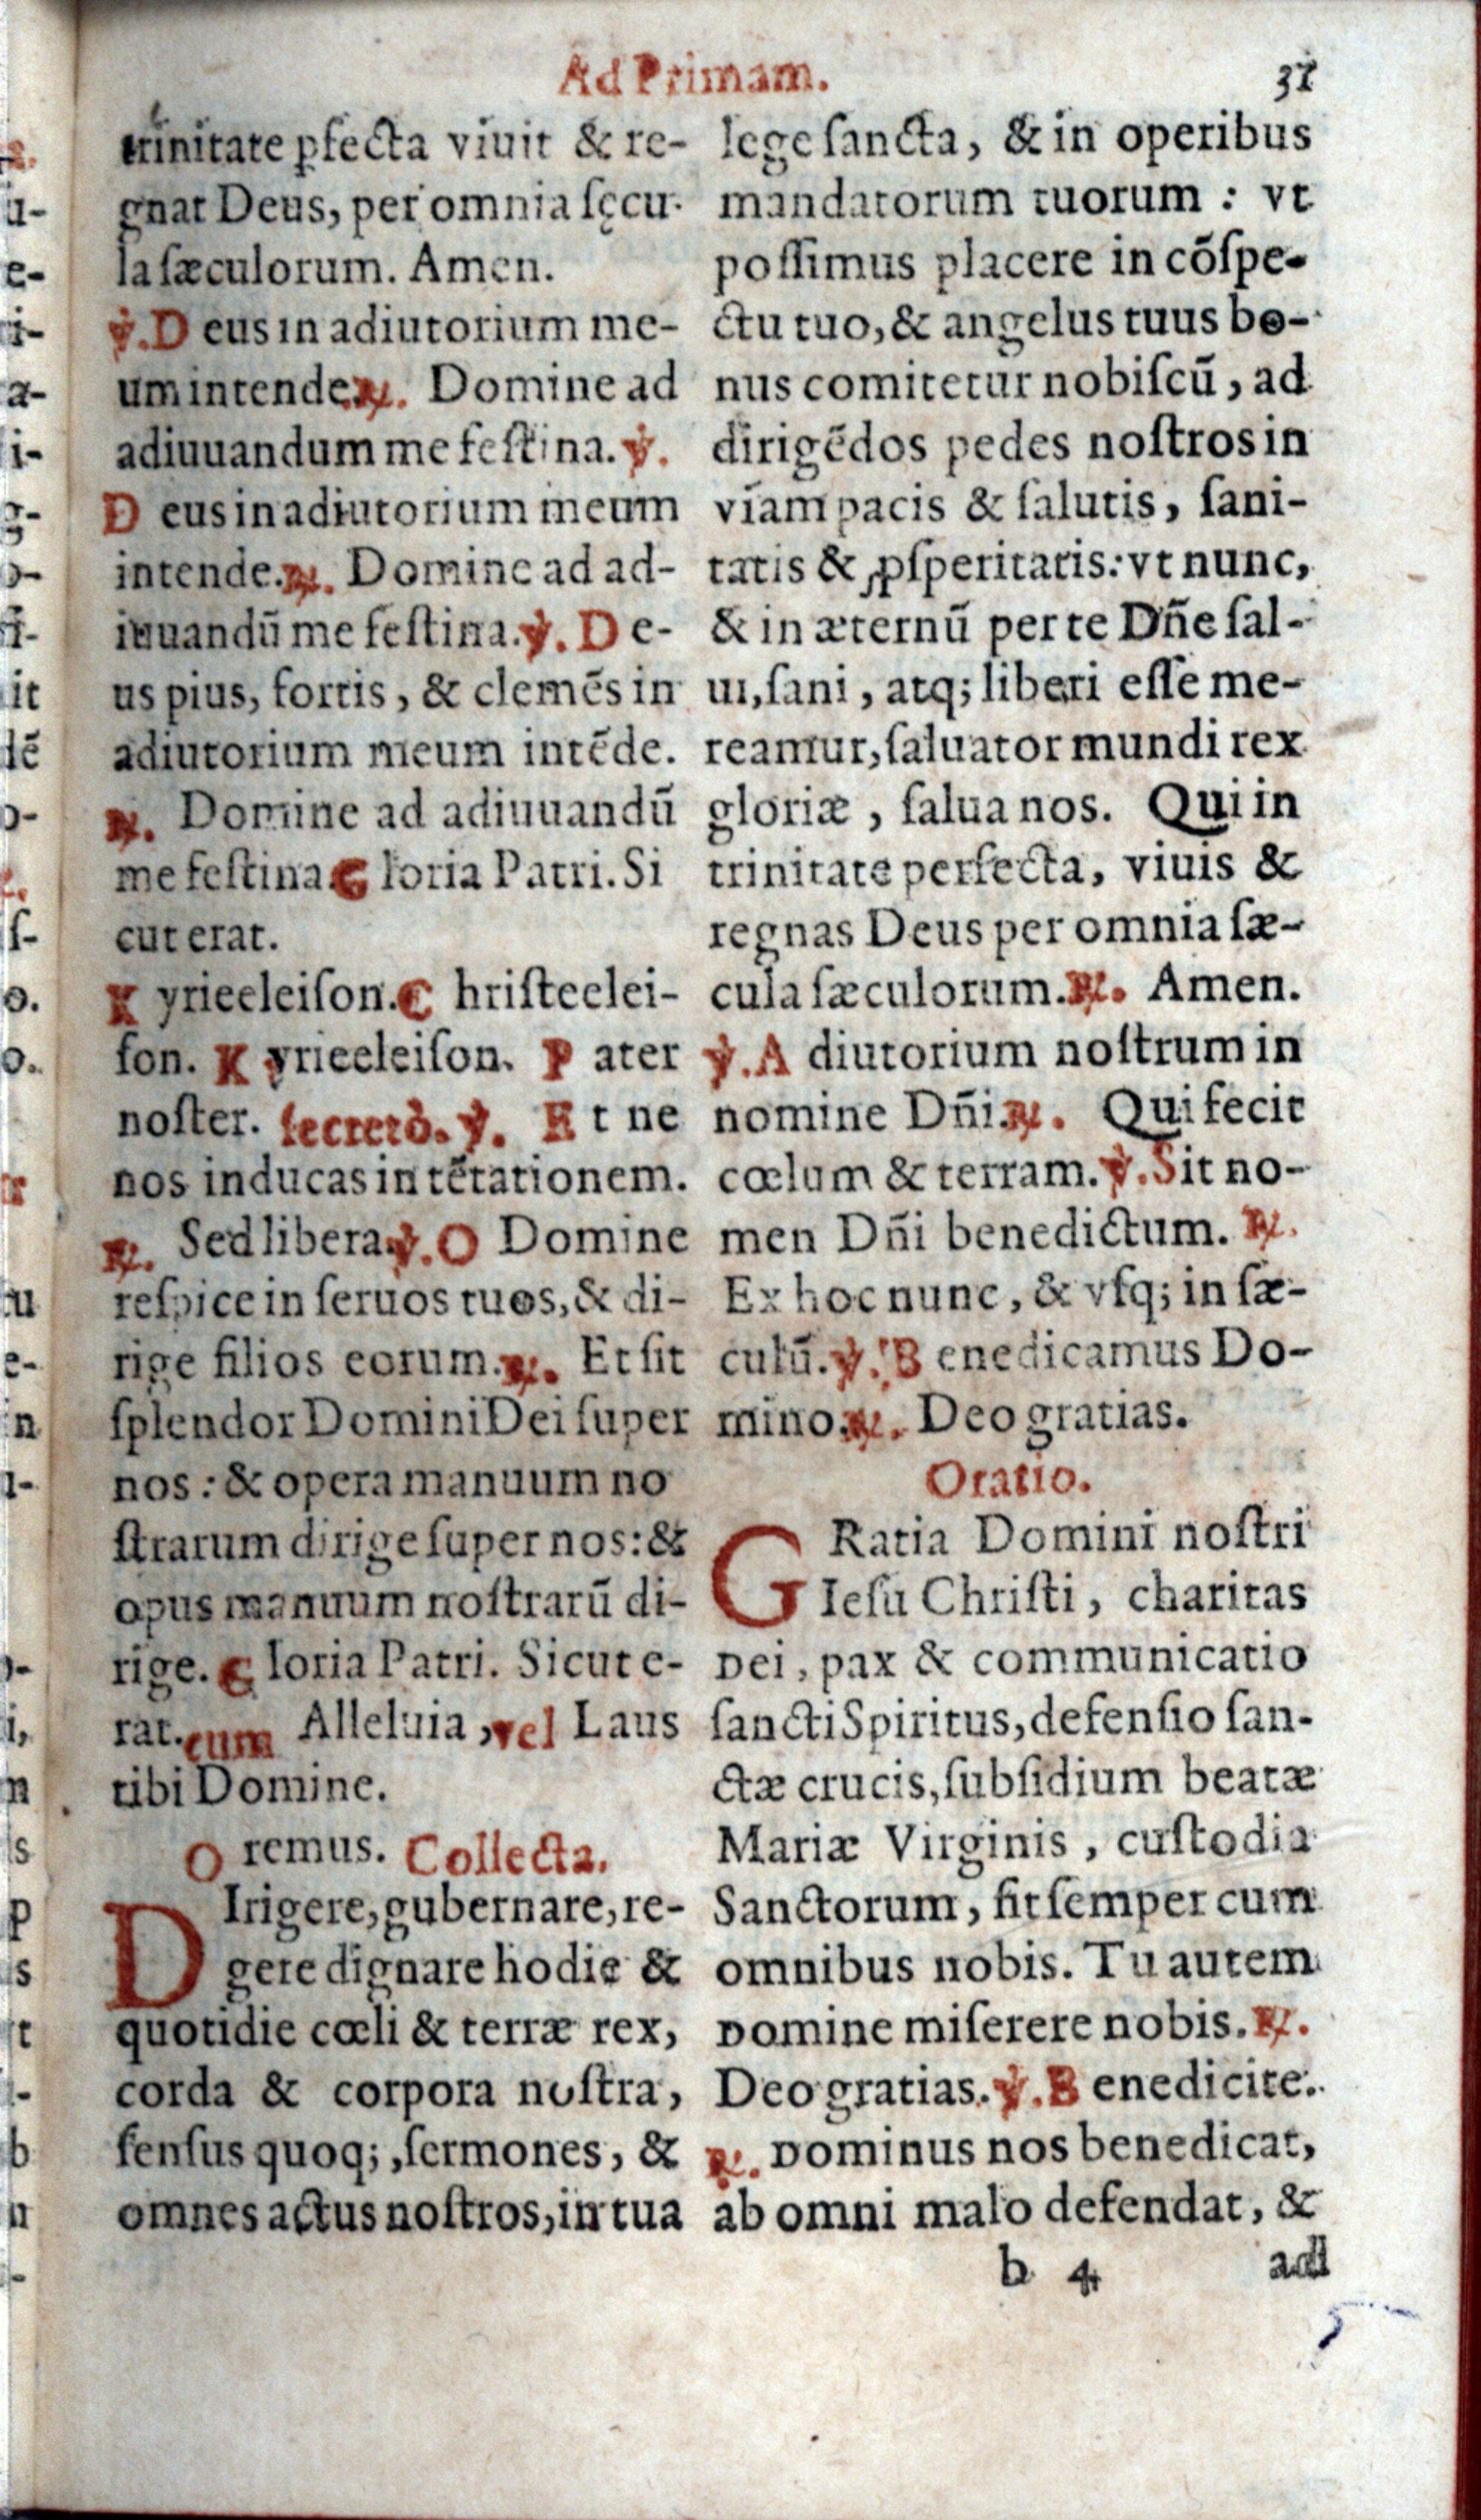 Ad Primam.
31
trinitate ꝑfecta viuit & re-
gnat Deus, per omnia sęcu-
la sæculorum. Amen.
℣. Deus in adiutorium me-
um intende. ℟. Domine ad
adiuuandum me festina. ℣.
Deus in adiutorium meum
intende. ℟. Domine ad ad-
iuuandū me festina. ℣. De-
us pius, fortis, & clemēs in
adiutorium meum intēde.
℟. Domine ad adiuuandū
me festina. Gloria Patri. Si
cut erat.
Kyrieeleiſon. Chriſteelei-
ſon. Kyrieeleiſon. Pater
noſter. ſecretò. ℣. Et ne
nos inducas in tētationem.
℟. Sed libera. ℣. O Domine
reſpice in ſeruos tuos, & di-
rige filios eorum. ℟. Et ſit
ſplendor Domini Dei ſuper
nos: & opera manuum no
ſtrarum dirige ſuper nos: &
opus manuum noſtrarū di-
rige. Gloria Patri. Sicut e-
rat. cum Alleluia, vel Laus
tibi Domine.
Oremus. Collecta.
DIrigere, gubernare, re-
gere dignare hodie &
quotidie cœli & terræ rex,
corda & corpora noſtra,
ſenſus quoq;, ſermones, &
omnes actus noſtros, in tua
lege ſancta, & in operibus
mandatorum tuorum: vt
poſſimus placere in cōſpe-
ctu tuo, & angelus tuus bo-
nus comitetur nobiſcū, ad
dirigēdos pedes noſtros in
viam pacis & ſalutis, ſani-
tatis & ꝓſperitatis: vt nunc,
& in æternū per te Dñe ſal-
ui, ſani, atq; liberi eſſe me-
reamur, ſaluator mundi rex
gloriæ, ſalua nos. Qui in
trinitate perfecta, viuis &
regnas Deus per omnia ſæ-
cula ſæculorum. ℟. Amen.
℣. Adiutorium noſtrum in
nomine Dñi. ℟. Qui fecit
cœlum & terram. ℣. Sit no-
men Dñi benedictum. ℟.
Ex hoc nunc, & vſq; in ſæ-
culū. ℣. Benedicamus Do-
mino. ℟. Deo gratias.
Oratio.
GRatia Domini noſtri
Ieſu Chriſti, charitas
Dei, pax & communicatio
ſancti Spiritus, defenſio ſan-
ctæ crucis, ſubſidium beatæ
Mariæ Virginis, cuſtodia
Sanctorum, ſit ſemper cum
omnibus nobis. Tu autem
Domine miſerere nobis. ℟.
Deo gratias. ℣. Benedicite.
℟. Dominus nos benedicat,
ab omni malo defendat, &
b 4
ad